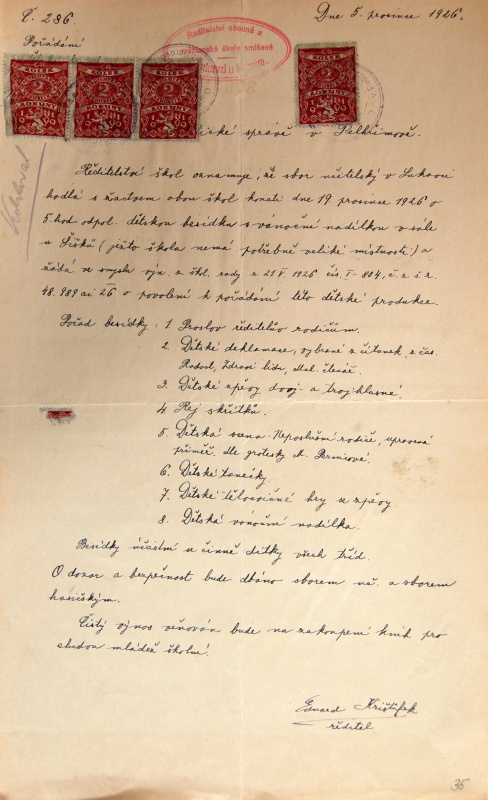 Č. 286.
Dne 5. prosince 1926.
Pořádání
Ředitelství obecné a
občanské školy smíšené
KOLEK
2
KORUNY
KOLEK
2
KORUNY
KOLEK
2
KORUNY
KOLEK
2
KORUNY
ické správě v Pelhřimově.
Ředitelství škol oznamuje, že sbor učitelský v Lukavci
hodlá s žactvem obou škol konati dne 19. prosince 1926 o
5. hod. odpol. dětskou besídku s vánoční nadílkou v sále
u Šišků (ježto škola nemá potřebně veliké místnosti) a
žádá ve smyslu výn. z. škl. rady z 21 V. 1926 čís. I-804, č. z. š. r.
48.989 ai 26 o povolení k pořádání této dětské produkce.
Pořad besídky: 1 Proslov ředitelův rodičům.
2. Dětské deklamace, vybrané z čítanek, z čas.
Radost, Zdraví lidu, Mal. čtenář.
3. Dětské zpěvy dvoj- a trojhlasné.
4. Rej skřítků.
5. Dětská scena: Neposlušní rodiče, upravená
přiměř. dle grotesky
6. Dětské tanečky.
7 Dětské tělocvičné hry se zpěvy.
8. Dětská vánoční nadílka.
Besídky účastní se činně dítky všech tříd.
O dozor a bezpečnost bude dbáno sborem uč. a sborem
hasičským.
Čistý výnos věnován bude na zakoupení knih pro
chudou mládež školní.
Eduard Krištůfek
ředitel
35